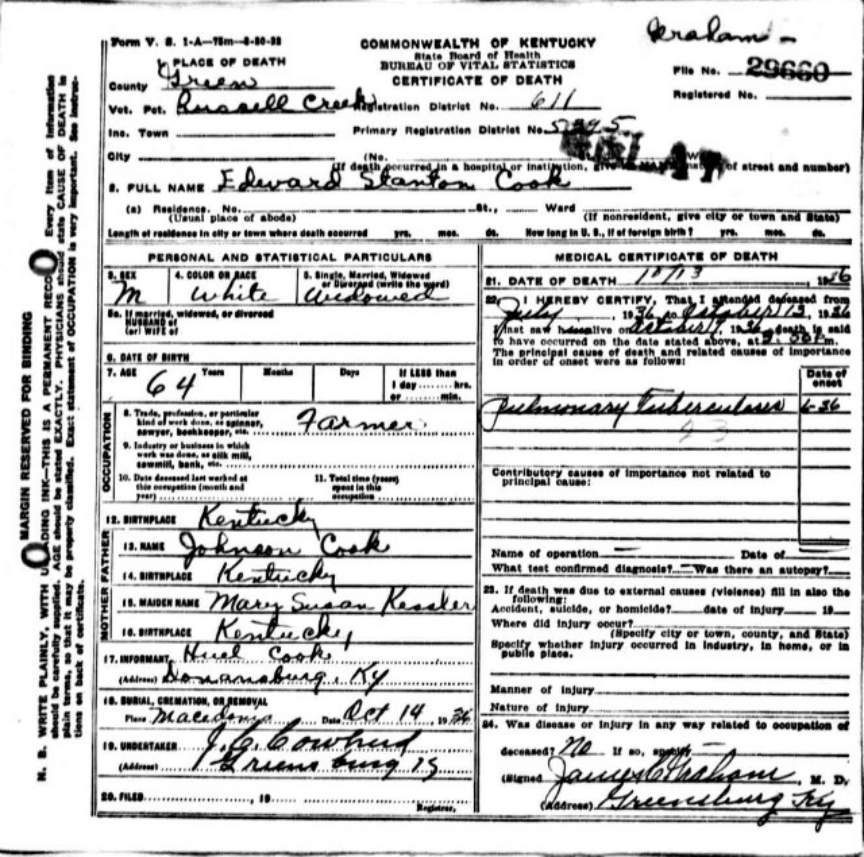 Graham -
Form V. S. 1-A—75m—8-30-32
COMMONWEALTH OF KENTUCKY
State Board of Health
BUREAU OF VITAL STATISTICS
CERTIFICATE OF DEATH
File No. 29660
Registered No.
1 PLACE OF DEATH
County Green
Vot. Pct. Russell Creek
Registration District No. 611
Inc. Town
Primary Registration District No. 5395
City
(No. St. Ward)
(If death occurred in a hospital or institution, give its NAME instead of street and number)
2. FULL NAME Edward Stanton Cook
(a) Residence. No. St., Ward
(Usual place of abode) (If nonresident, give city or town and State)
Length of residence in city or town where death occurred yrs. mos. ds. How long in U. S., if of foreign birth? yrs. mos. ds.
PERSONAL AND STATISTICAL PARTICULARS
3. SEX M
4. COLOR OR RACE White
5. Single, Married, Widowed or Divorced (write the word) Widowed
5a. If married, widowed, or divorced
HUSBAND of
(or) WIFE of
6. DATE OF BIRTH
7. AGE 64 Years Months Days If LESS than 1 day hrs. or min.
OCCUPATION
8. Trade, profession, or particular
kind of work done, as spinner,
sawyer, bookkeeper, etc. Farmer
9. Industry or business in which
work was done, as silk mill,
sawmill, bank, etc.
10. Date deceased last worked at
this occupation (month and
year)
11. Total time (years)
spent in this
occupation
12. BIRTHPLACE Kentucky
FATHER
13. NAME Johnson Cook
14. BIRTHPLACE Kentucky
MOTHER
15. MAIDEN NAME Mary Susan Kessler
16. BIRTHPLACE Kentucky
17. INFORMANT Huel Cook
(Address) Donansburg, Ky
18. BURIAL, CREMATION, OR REMOVAL
Place Macedonia Date Oct 14, 1936
19. UNDERTAKER J. C. Cowherd
(Address) Greensburg Ky
20. FILED , 19
Registrar.
MEDICAL CERTIFICATE OF DEATH
21. DATE OF DEATH 10/13 1936
22. I HEREBY CERTIFY, That I attended deceased from
July, 1936 to October 13, 1936
I last saw h alive on October, 1936 death is said
to have occurred on the date stated above, at m.
The principal cause of death and related causes of importance
in order of onset were as follows:
Date of onset
Pulmonary Tuberculosis 6-36
23
Contributory causes of importance not related to
principal cause:
Name of operation — Date of
What test confirmed diagnosis? — Was there an autopsy?
23. If death was due to external causes (violence) fill in also the
following:
Accident, suicide, or homicide? date of injury 19
Where did injury occur?
(Specify city or town, county, and State)
Specify whether injury occurred in industry, in home, or in
public place.
Manner of injury
Nature of injury
24. Was disease or injury in any way related to occupation of
deceased? No If so, specify —
(Signed James C Graham, M. D.
(Address) Greensburg Ky
MARGIN RESERVED FOR BINDING
N. B. WRITE PLAINLY, WITH UNFADING INK—THIS IS A PERMANENT RECORD Every item of information
should be carefully supplied. AGE should be stated EXACTLY. PHYSICIANS should state CAUSE OF DEATH in
plain terms, so that it may be properly classified. Exact statement of OCCUPATION is very important. See instruc-
tions on back of certificate.